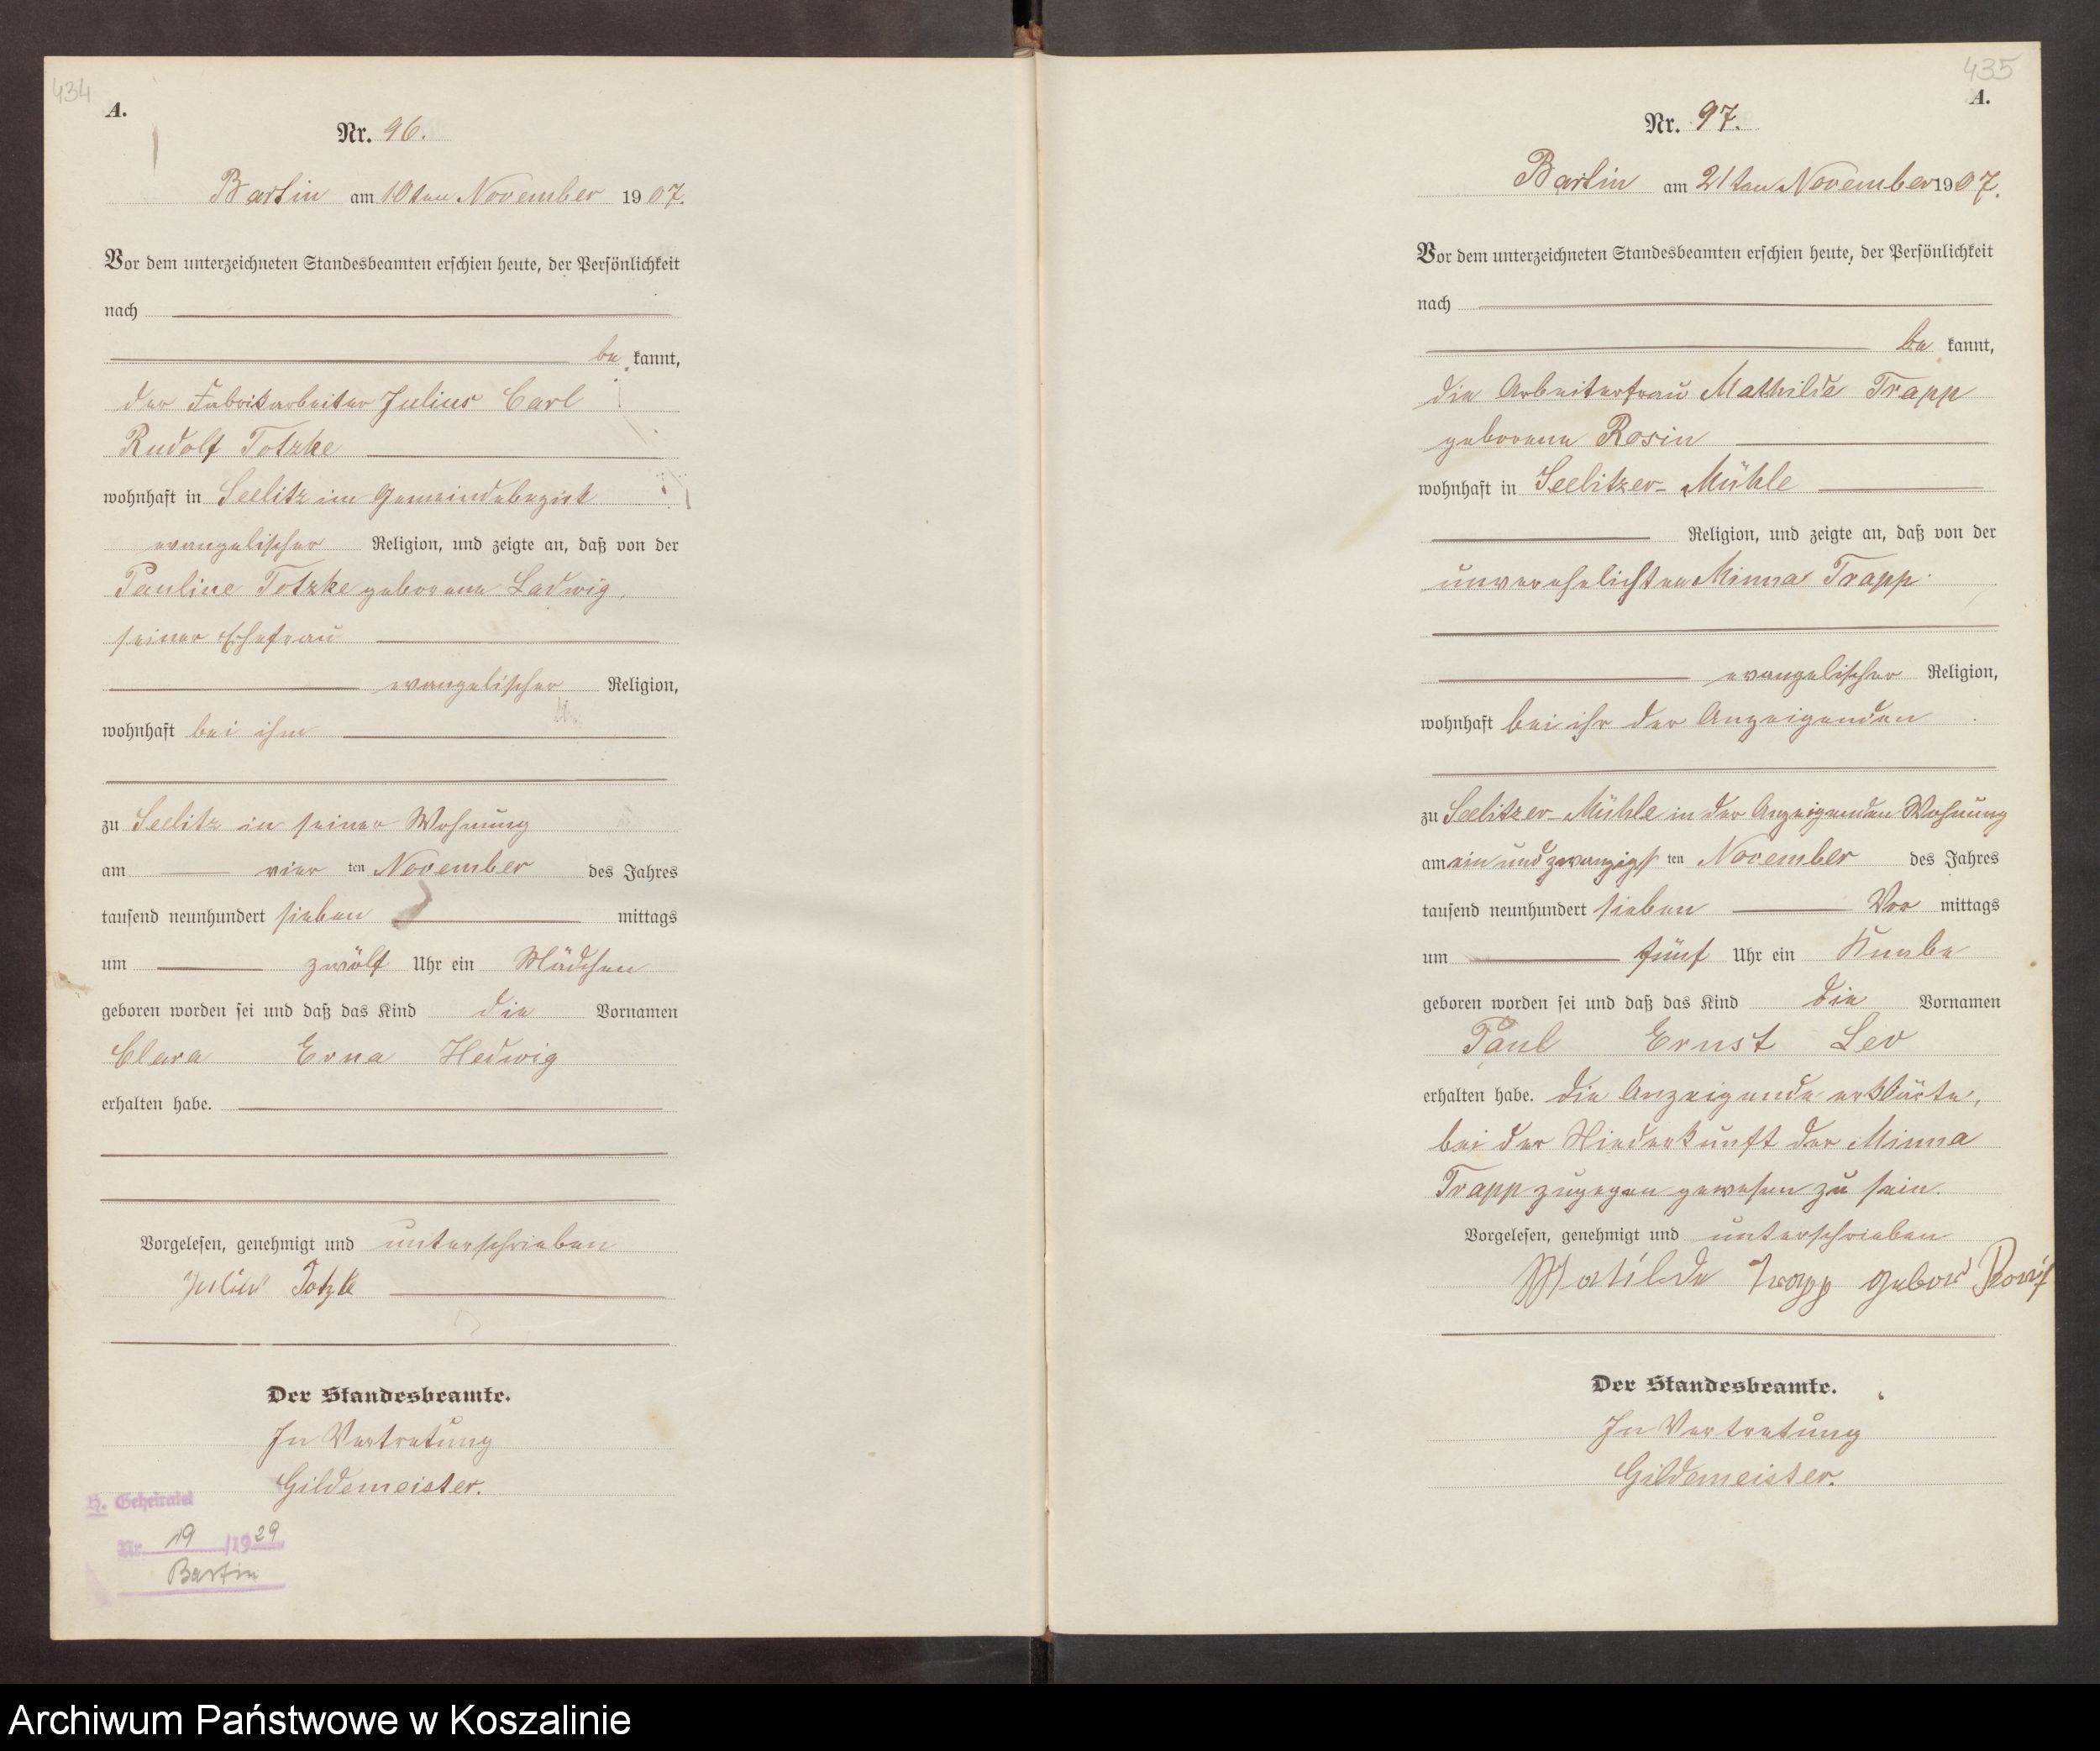 434
A.
Nr. 96.
Bartin am 10ten November 1907.
Vor dem unterzeichneten Standesbeamten erschien heute, der Persönlichkeit
nach
be kannt,
der Fabrikarbeiter Julius Carl
Rudolf Totzke
wohnhaft in Seelitz im Gemeindebezirk
evangelischer Religion, und zeigte an, daß von der
Pauline Totzke geborene Ladwig,
seiner Ehefrau
evangelischer Religion,
wohnhaft bei ihm
zu Seelitz in seiner Wohnung
am vier ten November des Jahres
tausend neunhundert sieben mittags
um zwölf Uhr ein Mädchen
geboren worden sei und daß das Kind die Vornamen
Clara Erna Hedwig
erhalten habe.
Vorgelesen, genehmigt und unterschrieben
Julius Totzke
Der Standesbeamte.
In Vertretung
Gildemeister.
H. Geheiratet
Nr. 19 /1929
Bartin
435
A.
Nr. 97.
Bartin am 21ten November 1907.
Vor dem unterzeichneten Standesbeamten erschien heute, der Persönlichkeit
nach
be kannt,
die Arbeiterfrau Mathilde Trapp
geborene Rosin
wohnhaft in Seelitzer-Mühle
Religion, und zeigte an, daß von der
unverehelichten Minna Trapp
evangelischer Religion,
wohnhaft bei ihr der Anzeigenden
zu Seelitzer-Mühle in der Anzeigenden Wohnung
am ein und zwanzigs ten November des Jahres
tausend neunhundert sieben Vor mittags
um fünf Uhr ein Knabe
geboren worden sei und daß das Kind die Vornamen
Paul Ernst Leo
erhalten habe. Die Anzeigende erklärte,
bei der Niederkunft der Minna
Trapp zugegen gewesen zu sein.
Vorgelesen, genehmigt und unterschrieben
Matilde Trapp
Der Standesbeamte.
In Vertretung
Gildemeister.
Archiwum Państwowe w Koszalinie